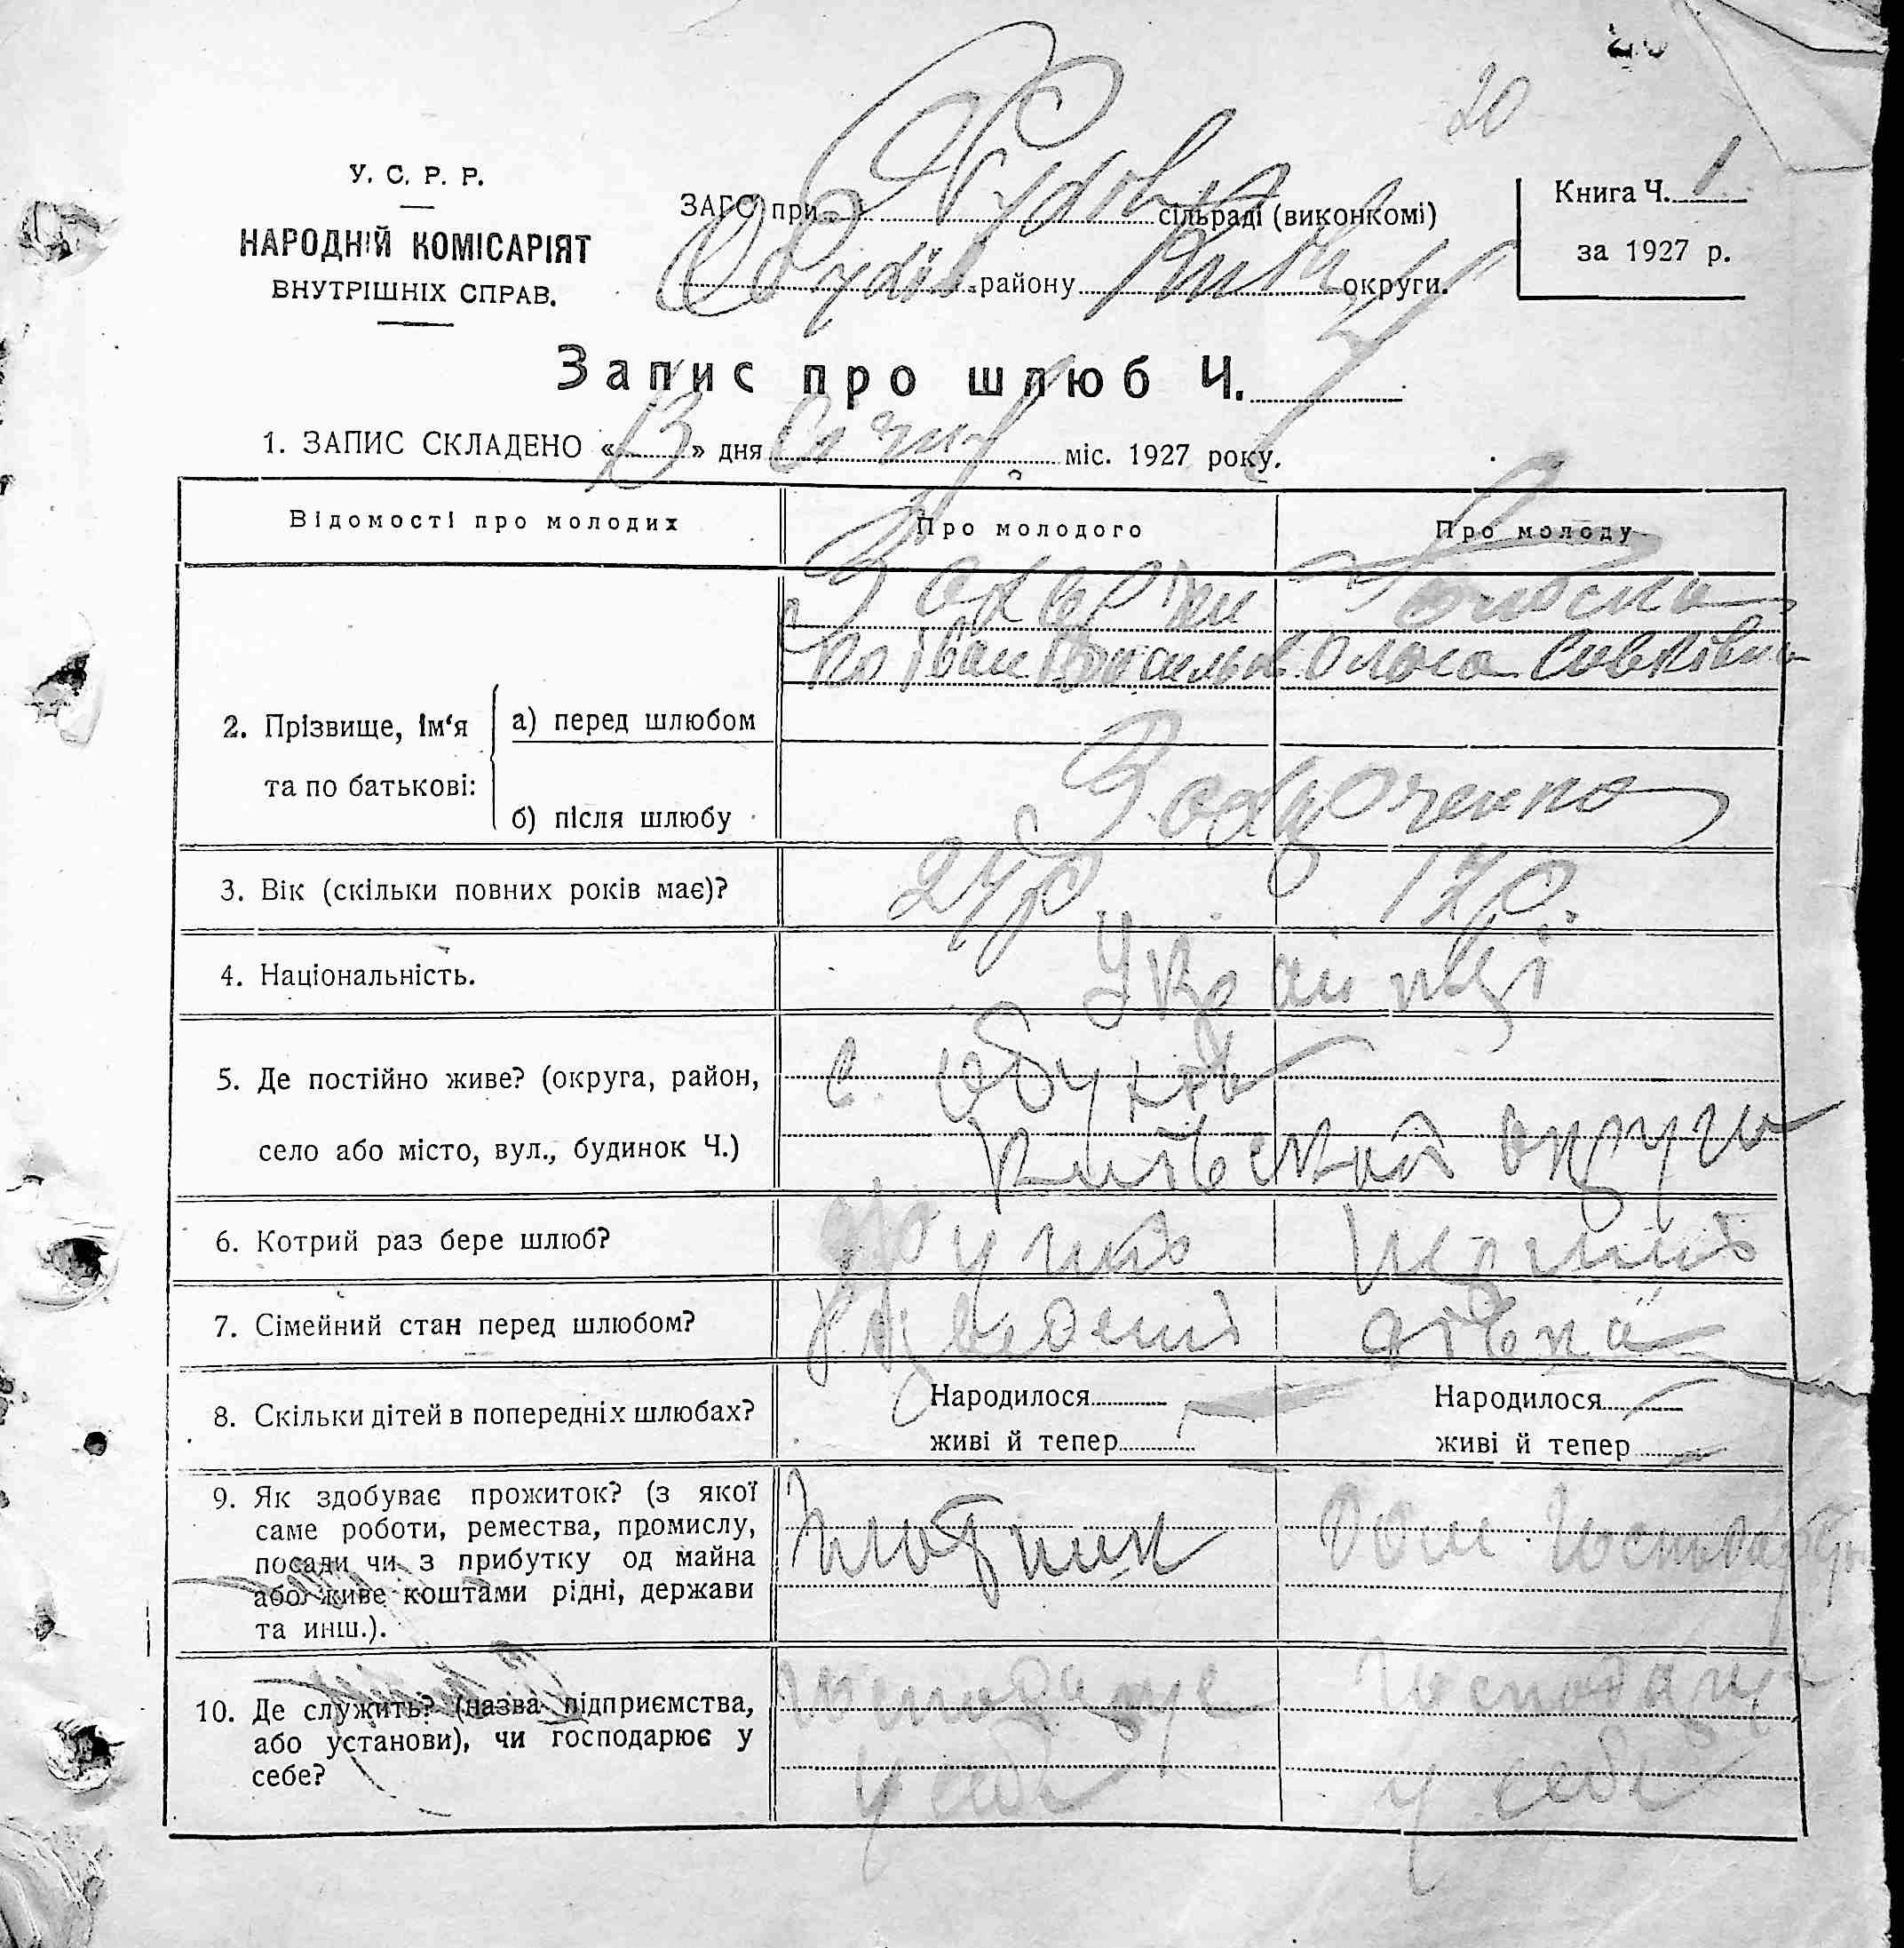 20
У. С. Р. Р.
НАРОДНІЙ КОМІСАРІЯТ
ВНУТРІШНІХ СПРАВ.
ЗАГС при сільраді (виконкомі)
району округи.
Книга Ч. 1
за 1927 р.
Запис про шлюб Ч.
1. ЗАПИС СКЛАДЕНО «13» дня Січня міс. 1927 року.
Відомості про молодих Про молодого Про молоду
2. Прізвище, ім'я та по батькові:
а) перед шлюбом
Іван Васильов Олога Савківна
б) після шлюбу
Захарченко
3. Вік (скільки повних років має)? 27 р 17 р.
4. Національність. Українці
5. Де постійно живе? (округа, район, с. Обухів
село або місто, вул., будинок Ч.) Київської округи
6. Котрий раз бере шлюб? другий перший
7. Сімейний стан перед шлюбом? розведений дівка
8. Скільки дітей в попередніх шлюбах? Народилося Народилося
живі й тепер живі й тепер
9. Як здобуває прожиток? (з якої
саме роботи, ремества, промислу,
посади чи з прибутку од майна
або живе коштами рідні, держави
та инш.).
хлобрник Дом.
10. Де служить? (назва підприємства,
або установи), чи господарює у
себе?
Господарує Господарує
у себе у себе